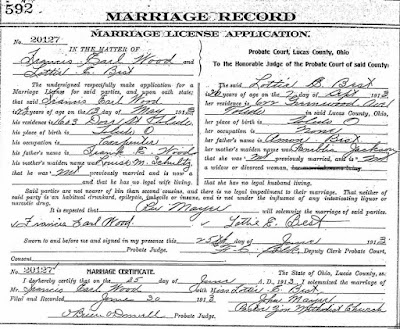 592 MARRIAGE RECORD
MARRIAGE LICENSE APPLICATION.
No. 20127
IN THE MATTER OF
Francis Earl Wood and
Lottie E. Best
The undersigned respectfully make application for a
Marriage License for said parties, and upon oath state;
that said Francis Earl Wood
is years of age on the day of May
his residence is
his place of birth is Toledo O
his occupation is
his father's name is Frank E Wood
his mother's maiden name was M. Schultz
that he was not previously married
and that he has no legal wife living
Probate Court, Lucas County, Ohio
To the Honorable Judge of the Probate Court of said County:
The said Lottie E. Best
is years of age on the day of Sept
her residence is Ave
Toledo in said Lucas County, Ohio
her place of birth is Toledo O
her occupation is none
her father's name is Best
her mother's maiden name was Jackson
that she was not previously married, and is not
a widow or divorced woman,
that she has no legal husband living.
Said parties are not nearer of kin than second cousins, there is no legal impediment to their marriage. That neither of
said party is an habitual drunkard, epileptic, imbecile or insane, and is not under the influence of any intoxicating liquor
or narcotic drug.
It is expected that Rev Mayer will solemnize the marriage of said parties.
Francis Earl Wood Lottie E. Best
Sworn to and before me and signed in my presence this 25th day of June 1913
Probate Judge. Deputy Clerk Probate Court.
Consent
Probate Judge.
No. 20127 MARRIAGE CERTIFICATE. The State of Ohio, Lucas County, ss:
I hereby certify that on the 25 day of June A. D. 1913 I solemnized the marriage of
Mr. Francis Earl Wood with Miss Lottie E. Best
Filed and Recorded June 30 1913 John Mayer
O'Brien O'Donnell Pastor Zion Methodist Church
Probate Judge.